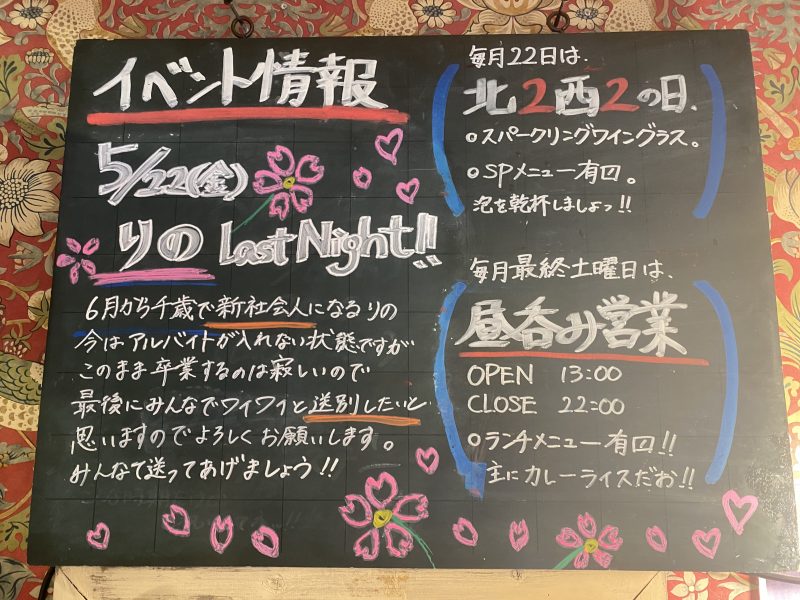 イベント情報
5/22(金)
りの Last Night!!
6月から千歳で新社会人になるりの
今はアルバイトが入れない状態ですが
このまま卒業するのは寂しいので
最後にみんなでワイワイと送別したいと
思いますのでよろしくお願いします。
みんなで送ってあげましょう!!
毎月22日は、
北2西2の日、
○スパークリングワイングラス。
○SPメニュー有□。
泡を乾杯しましょっ!!
毎月最終土曜日は、
昼呑み営業
OPEN 13:00
CLOSE 22:00
○ランチメニュー有□!!
主にカレーライスだお!!